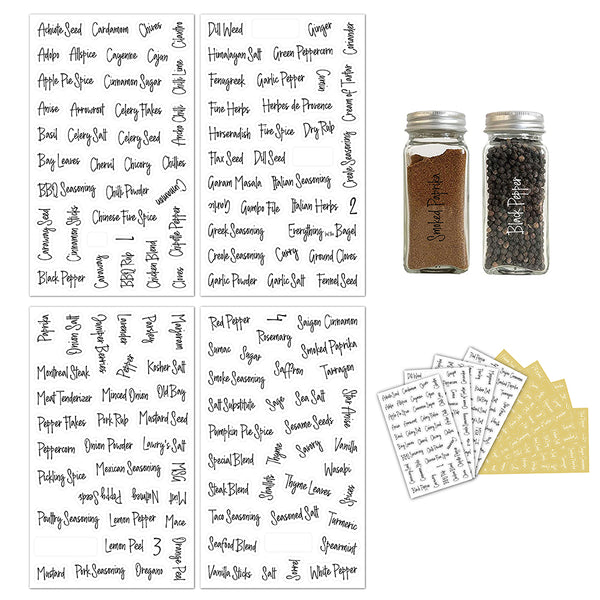 Achiote Seed Cardamom Chives
Cilantro
Adobo Allspice Cayenne Cajun
Apple Pie Spice Cinnamon Sugar
Chili Lime
Anise Arrowroot Celery Flakes
Ancho Chili
Basil Celery Salt Celery Seed
Bay Leaves Chervil Chicory Chilies
BBQ Seasoning Chili Powder
Cinnamon
Chinese Five Spice
Caraway Seed
Cinnamon Sticks
1
Chipotle Pepper
Black Pepper
Caraway
BBQ Rub
Chicken Blend
Cloves
Dill Weed Ginger
Coriander
Himalayan Salt Green Peppercorn
Fenugreek Garlic Pepper
Cumin
Cream of Tartar
Fine Herbs Herbes de Provence
Horseradish Five Spice Dry Rub
Flax Seed Dill Seed
Creole Seasoning
Garam Masala Italian Seasoning
Garlic
Gumbo File Italian Herbs 2
Greek Seasoning Everything but the Bagel
Creole Seasoning Curry Ground Cloves
Garlic Powder Garlic Salt Fennel Seed
Smoked Paprika
Black Pepper
Paprika
Onion Salt
Juniper Berries
Lavender
Parsley
Marjoram
Montreal Steak
Pepper
Kosher Salt
Meat Tenderizer Minced Onion Old Bay
Pepper Flakes Pork Rub Mustard Seed
Peppercorn Onion Powder Lawry's Salt
Pickling Spice Mexican Seasoning
MSG
Poppy Seeds
Nutmeg
Mint
Poultry Seasoning Lemon Pepper Mace
Lemon Peel 3
Orange Peel
Mustard Pork Seasoning Oregano
Red Pepper 4 Saigon Cinnamon
Rosemary
Sumac Sugar Smoked Paprika
Smoke Seasoning Saffron Tarragon
Salt Substitute Sage Sea Salt
Star Anise
Pumpkin Pie Spice Sesame Seeds
Special Blend
Thyme
Savory
Vanilla
Wasabi
Steak Blend
Shallots
Thyme Leaves
Spices
Taco Seasoning Seasoned Salt
Turmeric
Seafood Blend Spearmint
Vanilla Sticks Salt
Sorrel
White Pepper